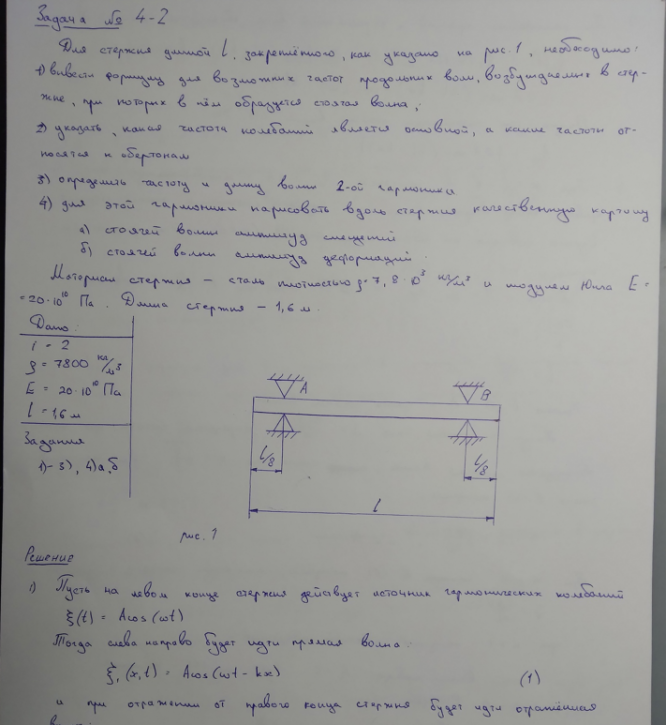 Задача № 4-2
Для стержня длиной l, закреплённого, как указано на рис 1, необходимо:
1) вывести формулу для возможных частот продольных волн, возбуждаемых в стер-
жне, при которых в нём образуется стоячая волна;
2) указать, какая частота колебаний является основной, а какие частоты от-
носятся к обертонам
3) определить частоту и длину волны 2-ой гармоники
4) для этой гармоники нарисовать вдоль стержня качественную картину
а) стоячей волны амплитуд смещений
б) стоячей волны амплитуд деформаций.
Материал стержня – сталь плотностью ρ = 7,8·10³ кг/м³ и модулем Юнга E =
= 20·10¹⁰ Па. Длина стержня – 1,6 м.
Дано:
i = 2
ρ = 7800 кг/м³
E = 20·10¹⁰ Па
l = 1,6 м
Задания
1)-3), 4)а,б
A
B
l/8
l/8
l
рис. 1
Решение
1) Пусть на левом конце стержня действует источник гармонических колебаний
ξ(t) = Acos(ωt)
Тогда слева направо будет идти прямая волна:
ξ₁(x,t) = Acos(ωt - kx) (1)
и при отражении от правого конца стержня будет идти отражённая